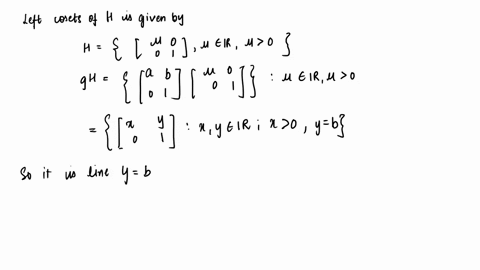 Left cosets of H is given by
H = { [ μ 0 0 1 ] , μ ∈ ℝ, μ > 0 }
gH = { [ a b 0 1 ] [ μ 0 0 1 ] } : μ ∈ ℝ, μ > 0
= { [ x y 0 1 ] : x, y ∈ ℝ ; x > 0 , y = b }
So it is line y = b